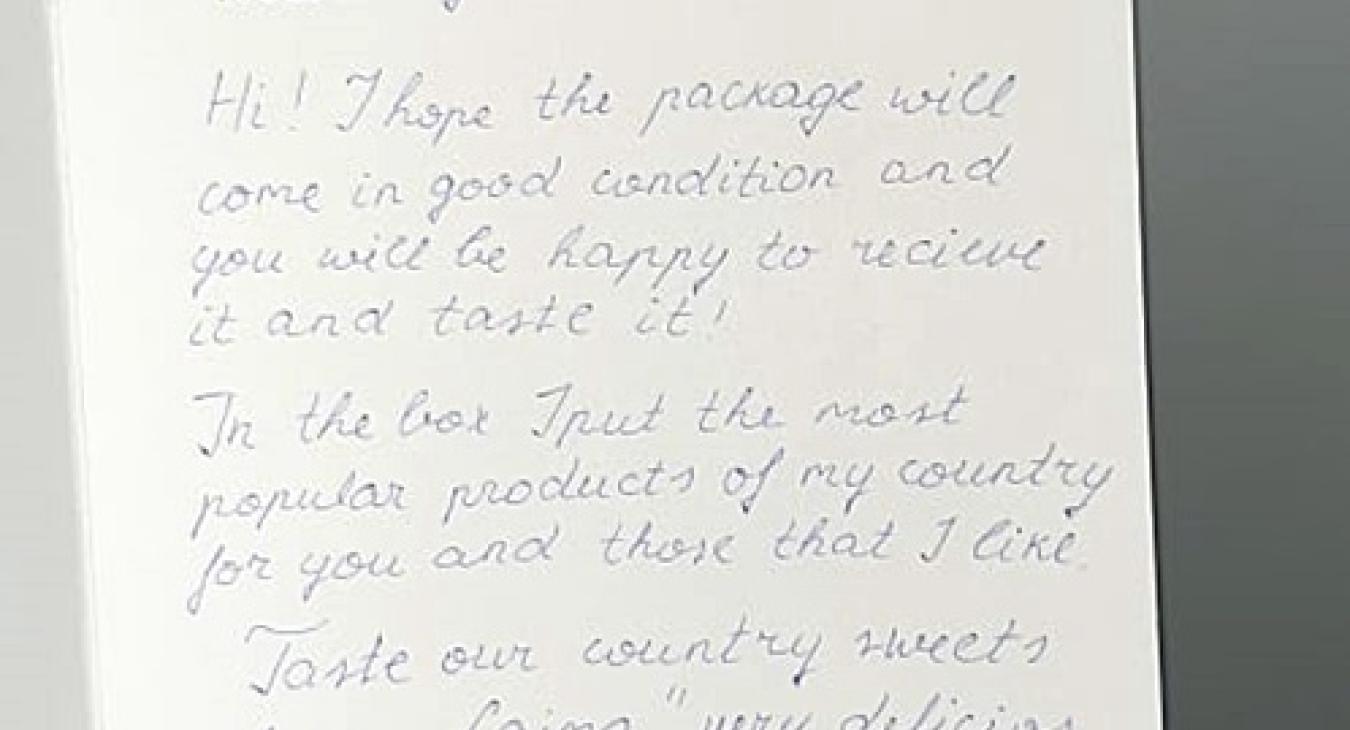 Hi! I hope the package will
come in good condition and
you will be happy to recieve
it and taste it!
In the box I put the most
popular products of my country
for you and those that I like.
Taste our country sweets
" very